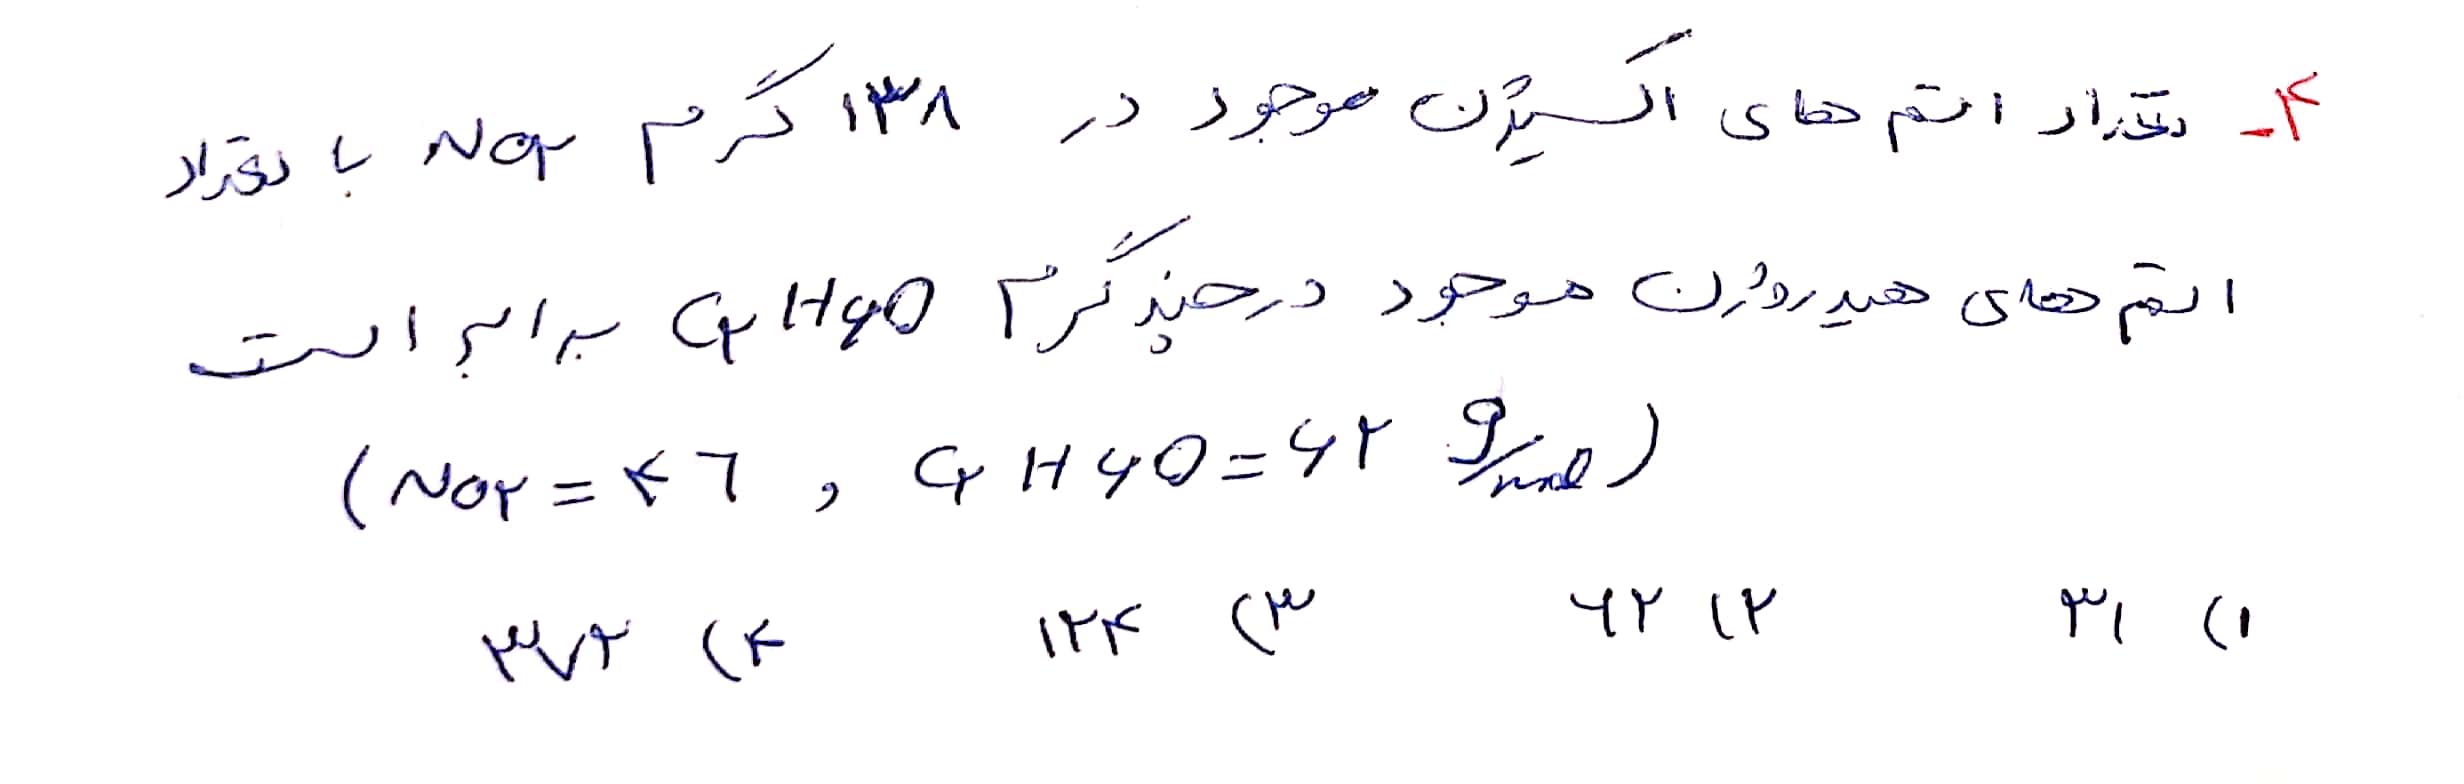 ۴- تعداد اتم های اکسیژن موجود در ۱۳۸ گرم NO۲ با تعداد
اتم های هیدروژن موجود در چند گرم C۲H۶O برابر است
(NO۲ = ۴۶ , C۲H۶O = ۶۲ g/mol)
۱) ۳۱ ۲) ۶۲ ۳) ۱۲۴ ۴) ۳۷۲